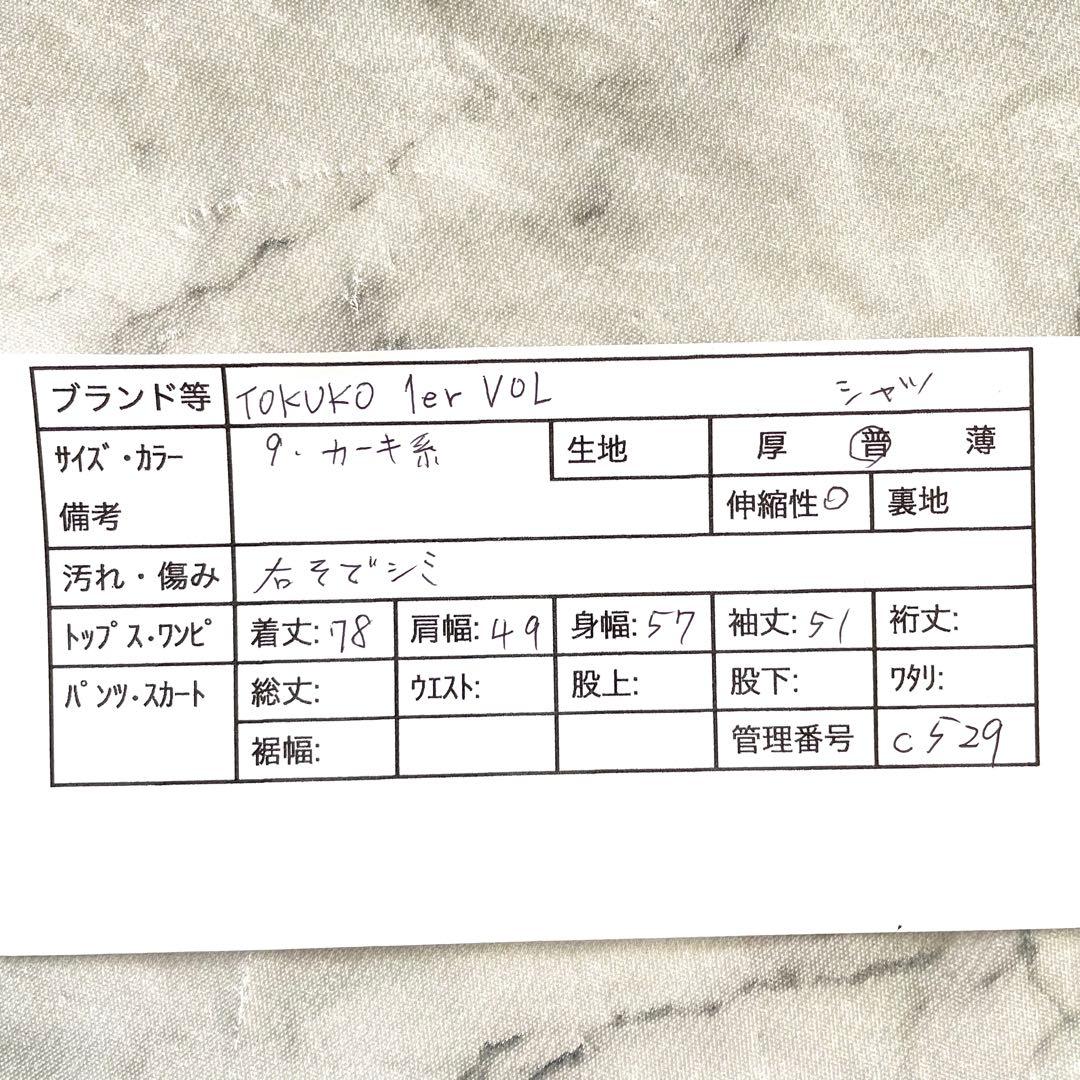 ブランド等 TOKUKO 1er VOL シャツ
サイズ・カラー 9. カーキ系 生地 厚 普 薄
備考 伸縮性○ 裏地
汚れ・傷み 右そでシミ
トップス・ワンピ 着丈: 78 肩幅: 49 身幅: 57 袖丈: 51 裄丈:
パンツ・スカート 総丈: ウエスト: 股上: 股下: ワタリ:
裾幅: 管理番号 c529